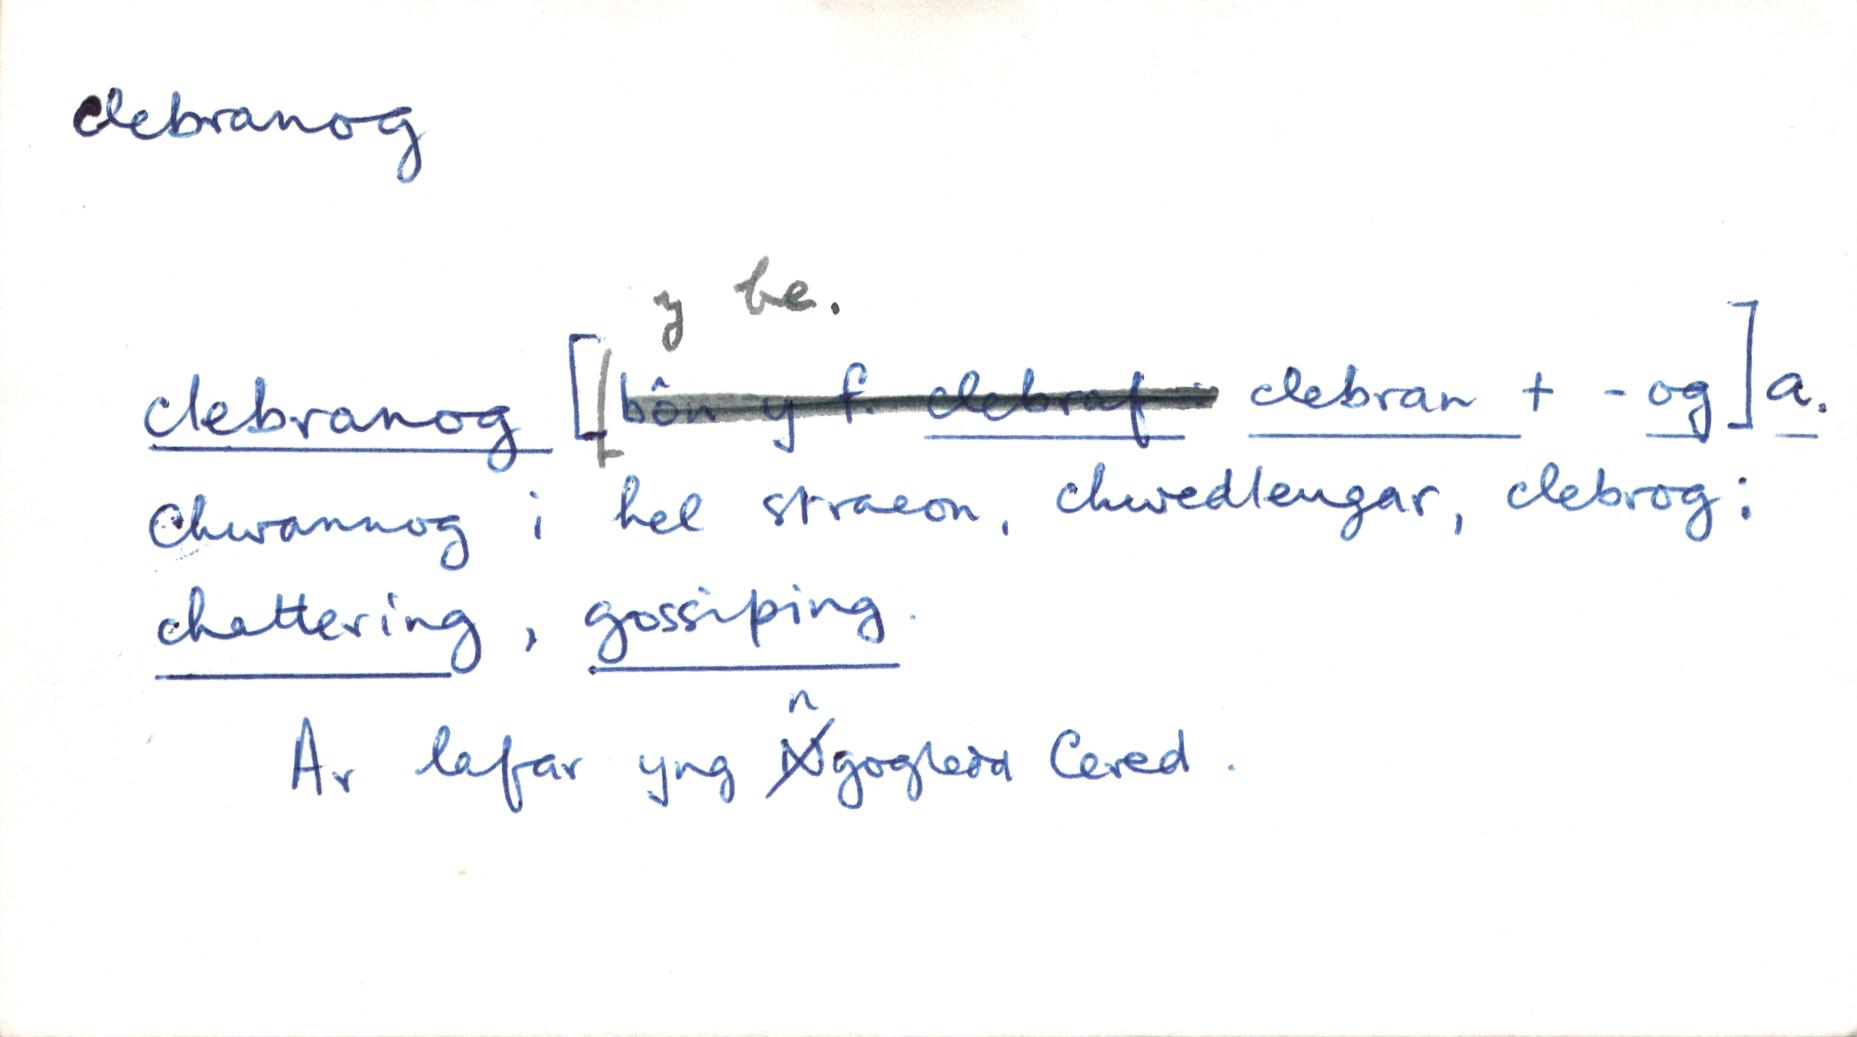 clebranog
y be.
clebranog [bôn y f. clebraf: clebran + -og] a.
Chwannog i hel straeon, chwedleugar, clebrog;
chattering, gossiping.
n
Ar lafar yng Ngogledd Cered.